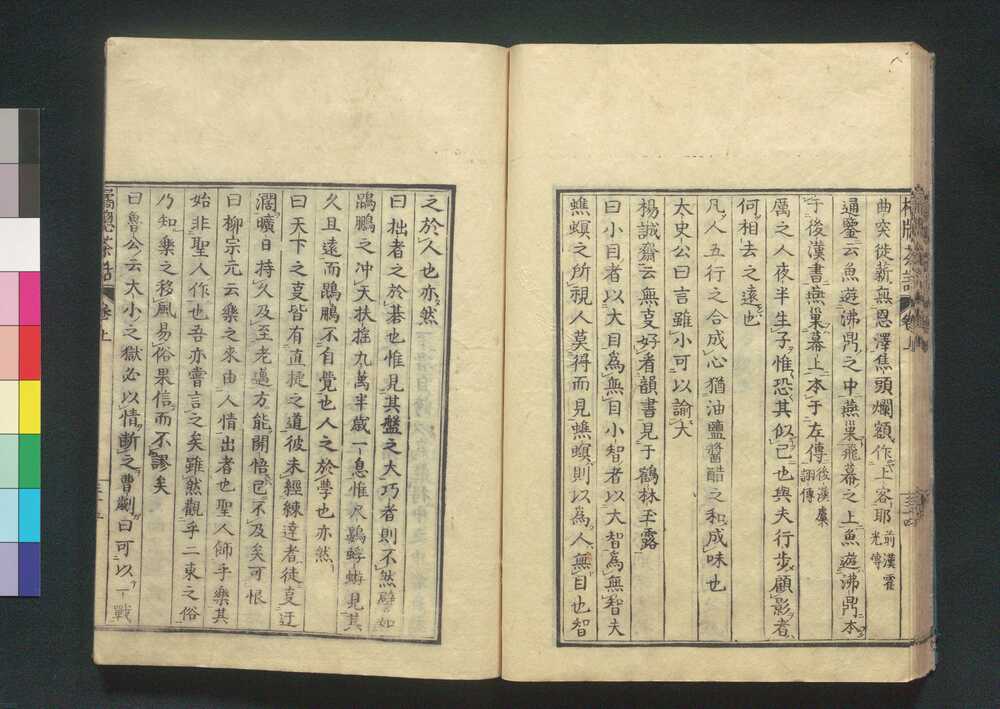 曲突徙薪無恩澤焦頭爛額作上客耶前漢霍光傳
通鑒云魚遊沸鼎之中燕巢飛幕之上魚遊沸鼎本
于後漢書燕巢幕上本于左傳後漢廉詡傳
厲之人夜半生子惟恐其似己也與夫行步顧影者
何相去之遠也
凡人五行之合成心猶油鹽醬酷之和成味也
太史公曰言雖小可以諭大
楊誠齋云無叓好看韻書見于鶴林玊露
曰小目者以大目為無目小智者以大智為無智夫
蟭螟之所視人莫得而見蟭螟則以為人無目也智
之於人也亦然
曰拙者之於碁也惟見其盤之大巧者則不然譬如
鵾鵬之冲天扶搖九萬半歲一息惟尺鷃蜉蝣見其
久且遠而鵾鵬不自覺也人之於學也亦然
曰天下之叓皆有直捷之道彼未經練達者徒叓迂
濶曠日持久及至老邁方能開悟已不及矣可恨
曰柳宗元云樂之來由人情出者也聖人飾乎樂其
始非聖人作也吾亦嘗言之矣雖然觀乎二東之俗
乃知樂之移風易俗果信而不謬矣
曰魯公云大小之獄必以情斷之曹劌曰可以一戰